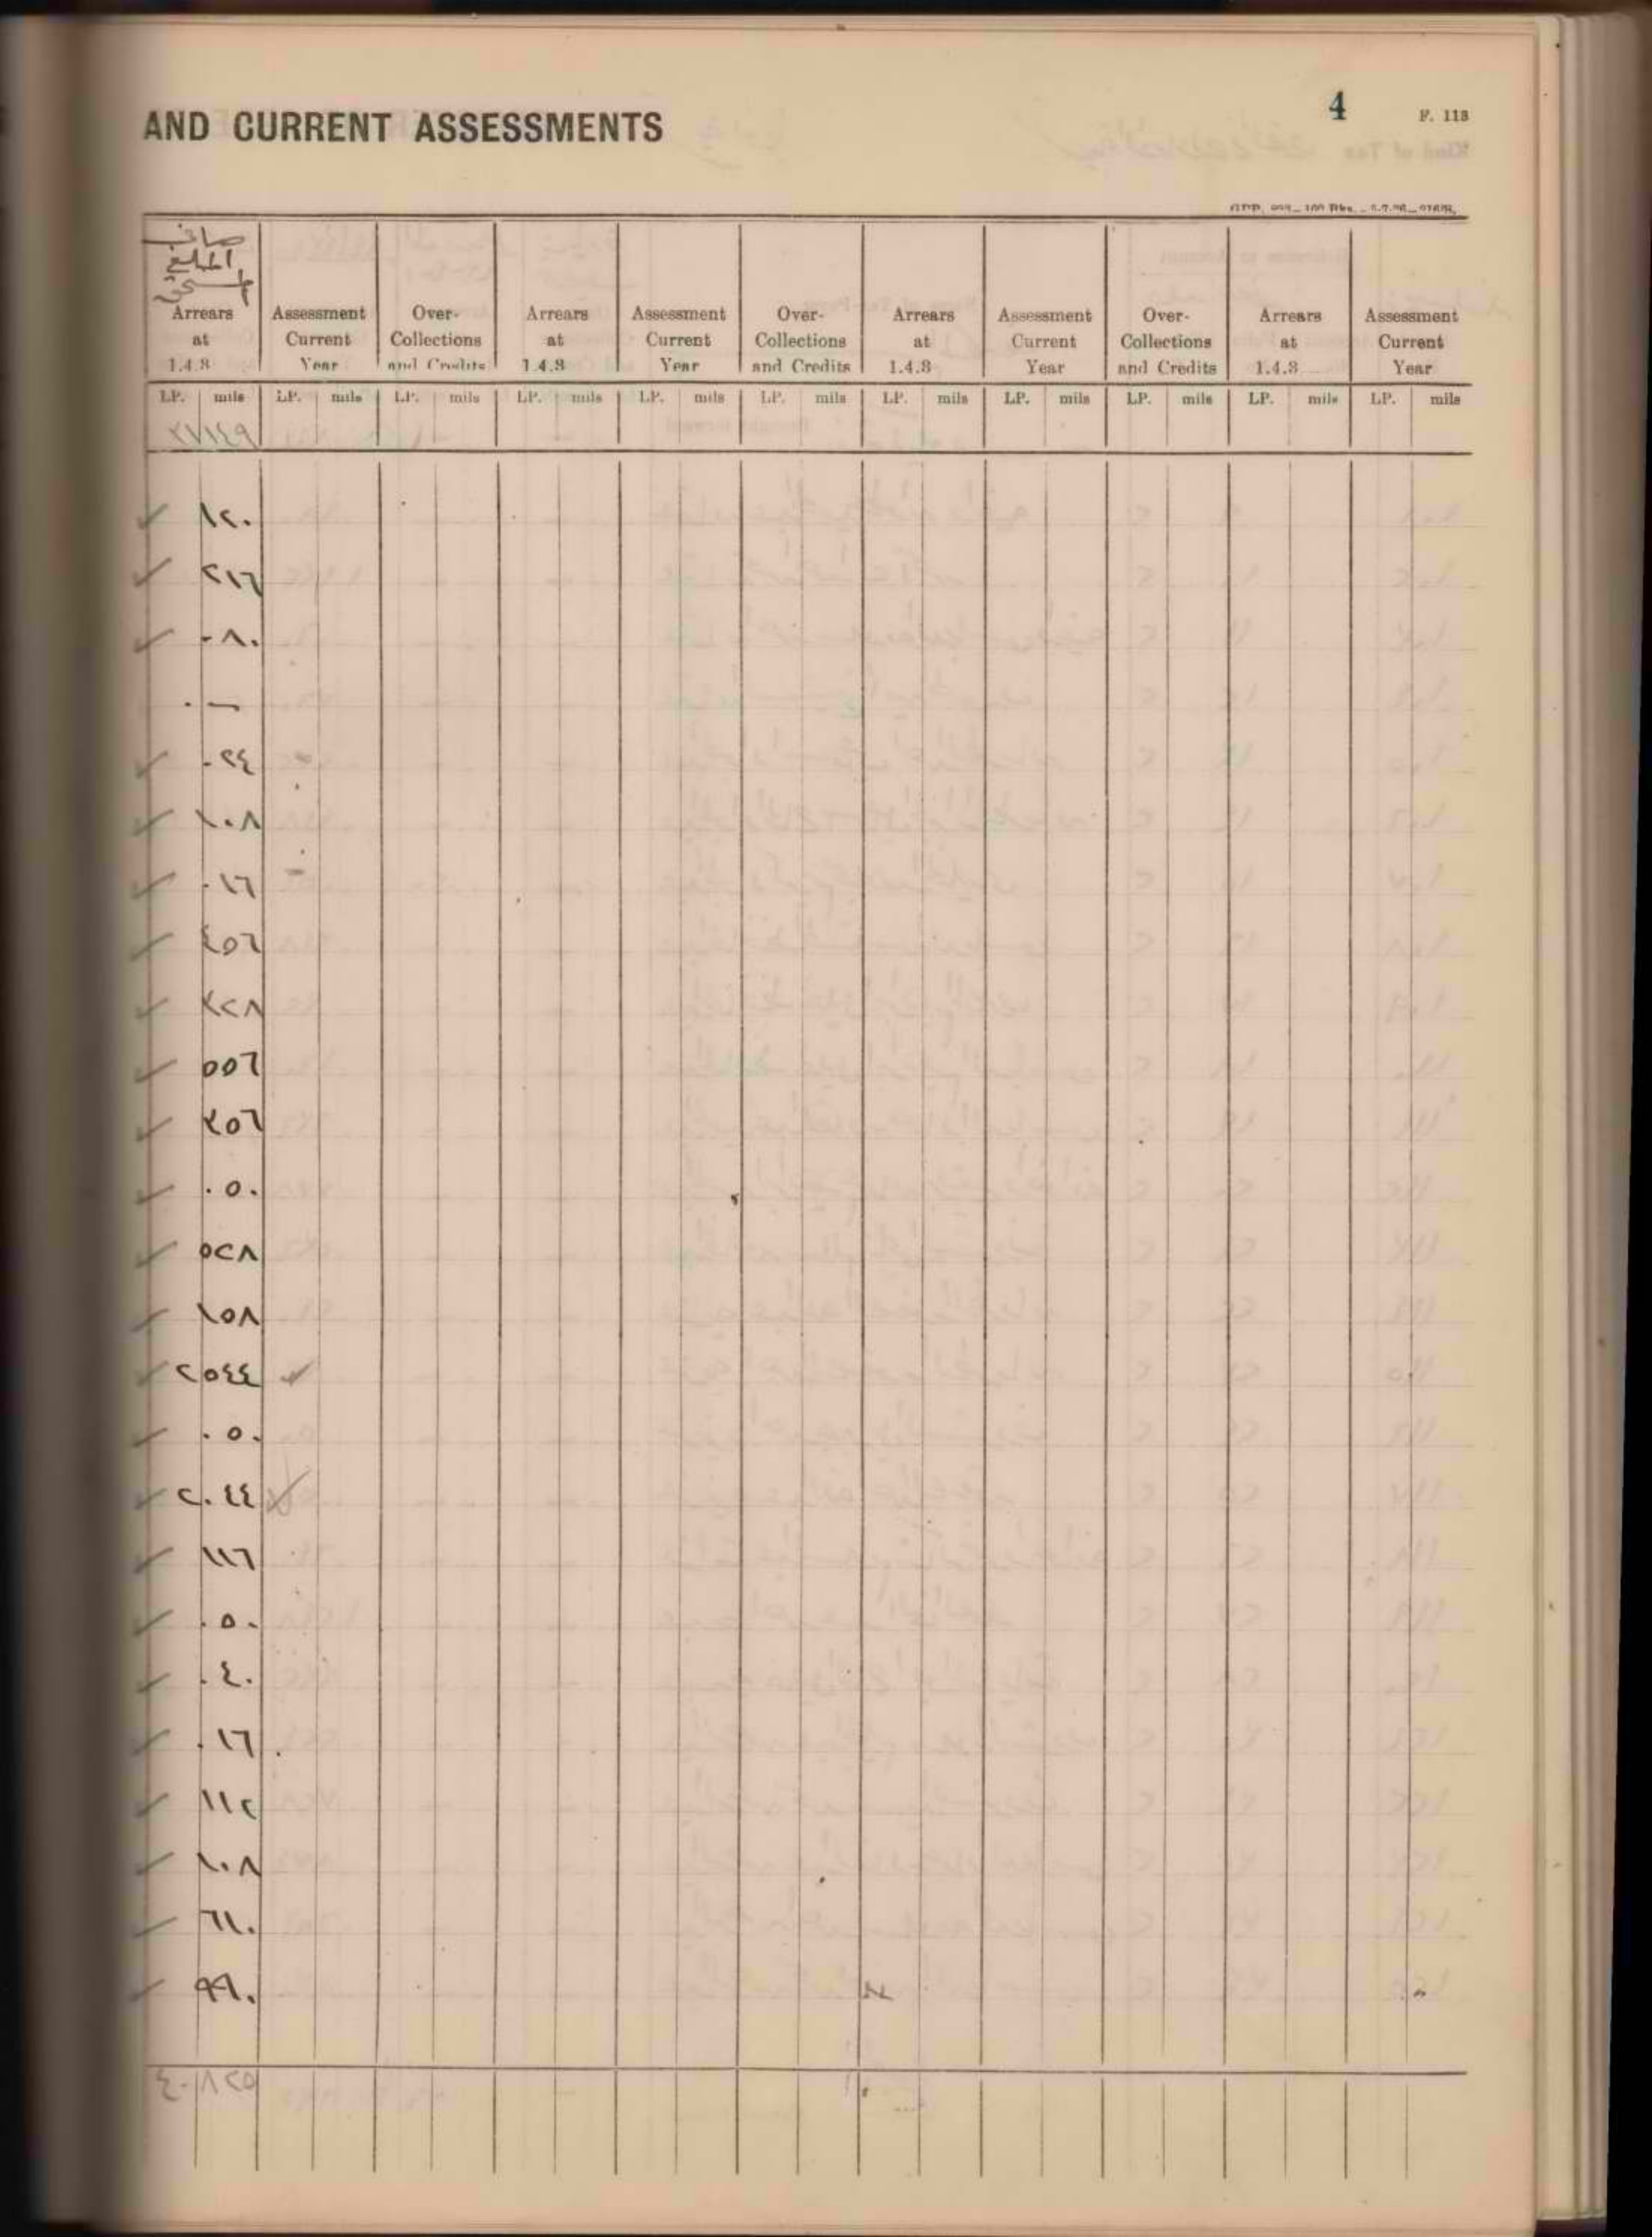 4
F. 118
AND CURRENT ASSESSMENTS
صافي
المبلغ
Arrears at 1.4.3 | Assessment Current Year | Over-Collections and Credits | Arrears at 1.4.3 | Assessment Current Year | Over-Collections and Credits | Arrears at 1.4.3 | Assessment Current Year | Over-Collections and Credits | Arrears at 1.4.3 | Assessment Current Year
LP. mils LP. mils LP. mils LP. mils LP. mils LP. mils LP. mils LP. mils LP. mils LP. mils LP. mils
٢٧١٤٩
١٢٠
٢١٦
٠٨٠
٠ —
٠٢٤
١٠٨
٠١٦
٤٥٦
٣٢٨
٥٥٦
٣٥٦
٠٥٠
٥٢٨
١٥٨
٢٥٤٤
٠٥٠
٢٠٤٤
١١٦
٠٥٠
٠٤٠
٠١٦
١١٢
١٠٨
٦١٠
٤٠٨٢٥